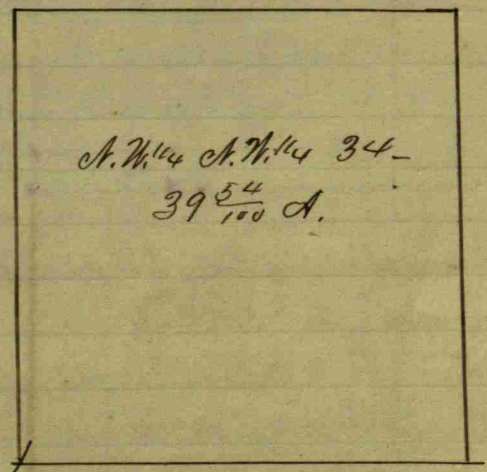 N.W.1/4 N.W.1/4 34-
39 54/100 A.